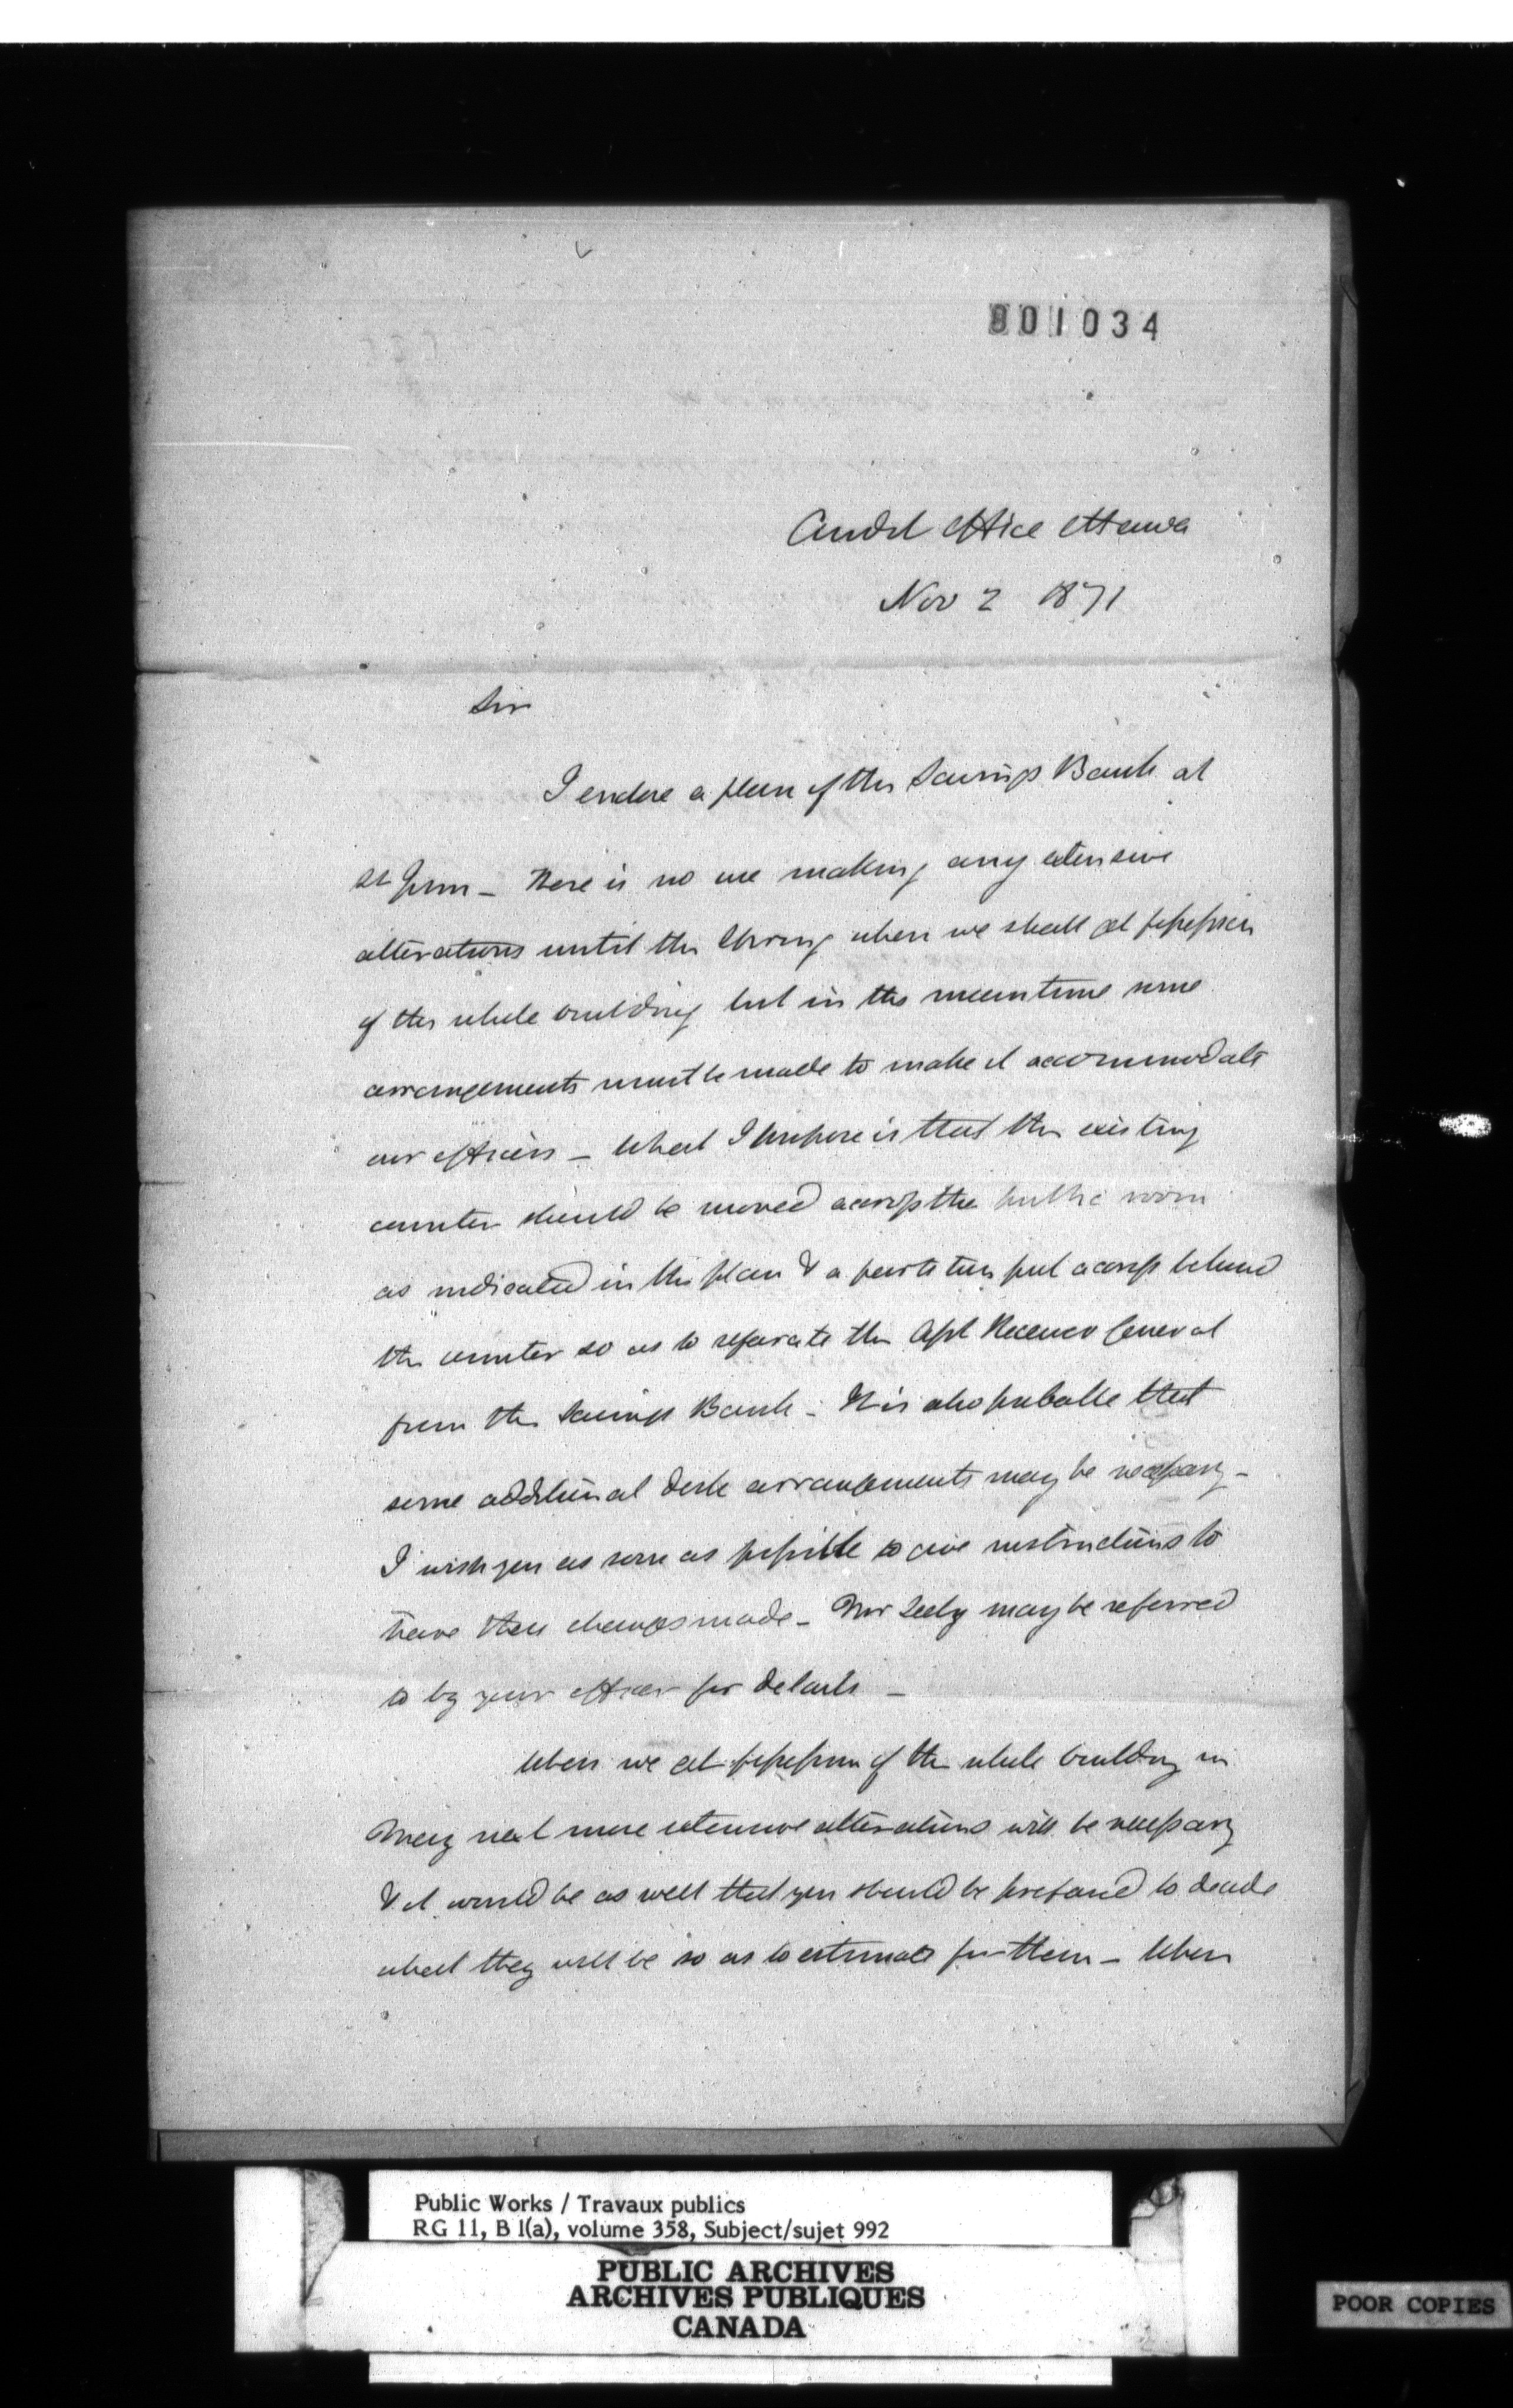 801034
Audit Office Ottawa
Nov 2 1871
Sir
I enclose a plan of the Savings Bank at
St John - There is no use making any extensive
alterations until the Spring when we shall get possession
of the whole building but in the meantime some
arrangements must be made to make it accommodate
our officers - What I propose is that the existing
counter should be moved across the public room
as indicated in the plan & a partition put across behind
the counter so as to separate the Asst Receiver General
from the Savings Bank - It is also probable that
some additional desk arrangements may be necessary -
I wish you as soon as possible to give instructions to
have these changes made - Mr Seely may be referred
to by your officer for details -
When we get possession of the whole building in
May next more extensive alterations will be necessary
& it would be as well that you should be prepared to decide
what they will be so as to estimate for them - When
Public Works / Travaux publics
RG 11, B 1(a), volume 358, Subject/sujet 992
PUBLIC ARCHIVES
ARCHIVES PUBLIQUES
CANADA
POOR COPIES